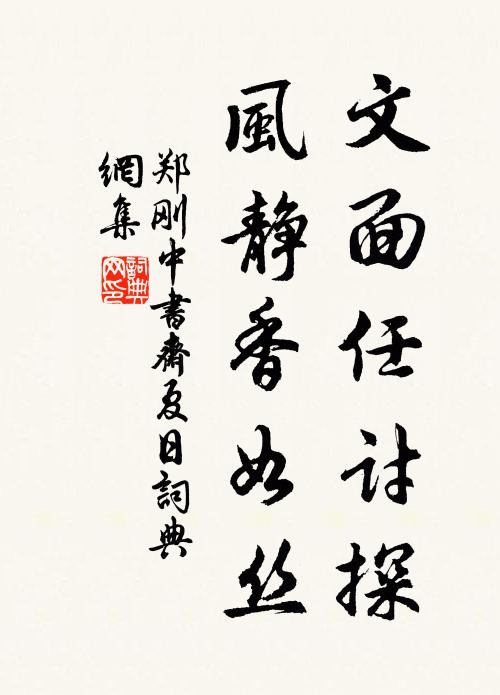 文面任讨探
風静香如丝
郑刚中書齋夏日詞典
網集
詞典
网印